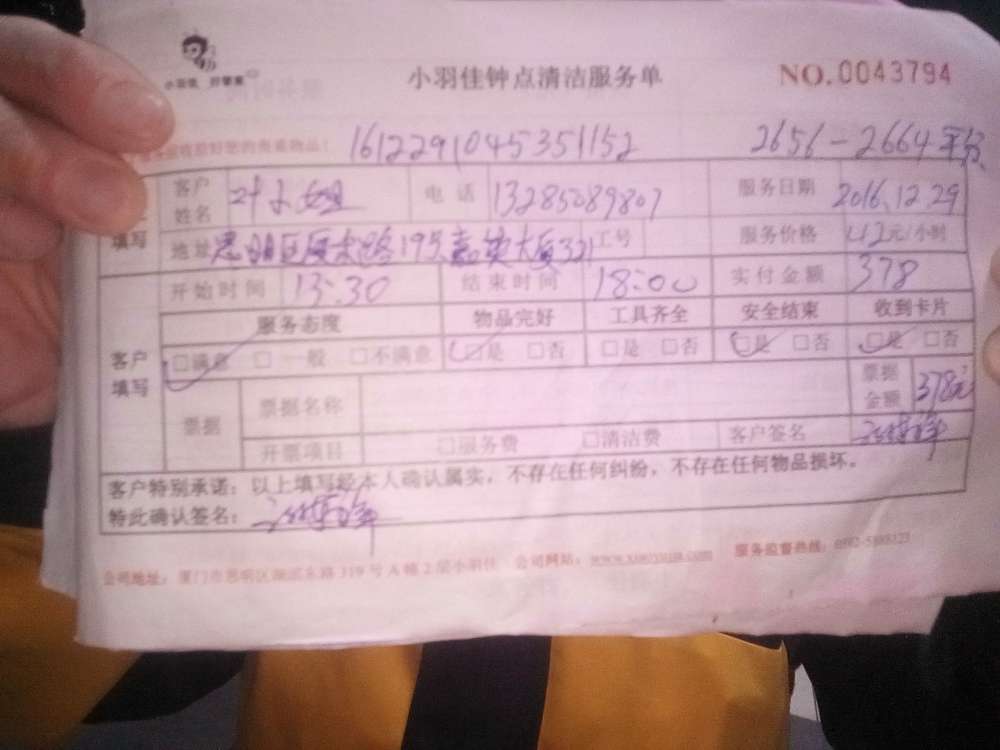 小羽佳 好管家
小羽佳钟点清洁服务单 NO.0043794
您的贵重物品! 1612291045351152 2656-2664
客户姓名 叶小姐 电话 13285089807 服务日期 2016.12.29
填写 地址 思明区厦禾路195 大厦321 工号 服务价格 42元/小时
开始时间 13:30 结束时间 18:00 实付金额 378
服务态度 物品完好 工具齐全 安全结束 收到卡片
客户填写 □满意 □一般 □不满意 □是 □否 □是 □否 □是 □否 □是 □否
票据 票据名称 票据金额 378元
开票项目 □服务费 □清洁费 客户签名
客户特别承诺：以上填写经本人确认属实，不存在任何纠纷，不存在任何物品损坏。
特此确认签名：
公司地址：厦门市思明区湖滨东路319号A幢2层小羽佳 公司网站： 服务监督热线：